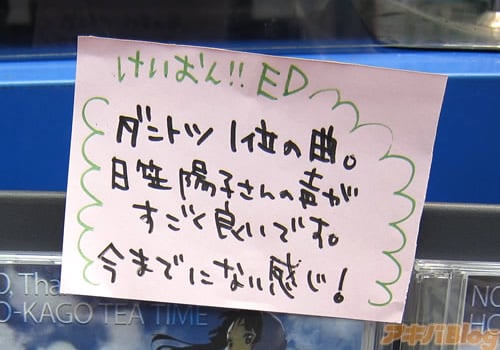 けいおん!! ED
ダントツ1位の曲。
日笠陽子さんの声が
すごく良いです。
今までにない感じ!
O-KAGO TEA TIME
NO
HO
アキバBlog